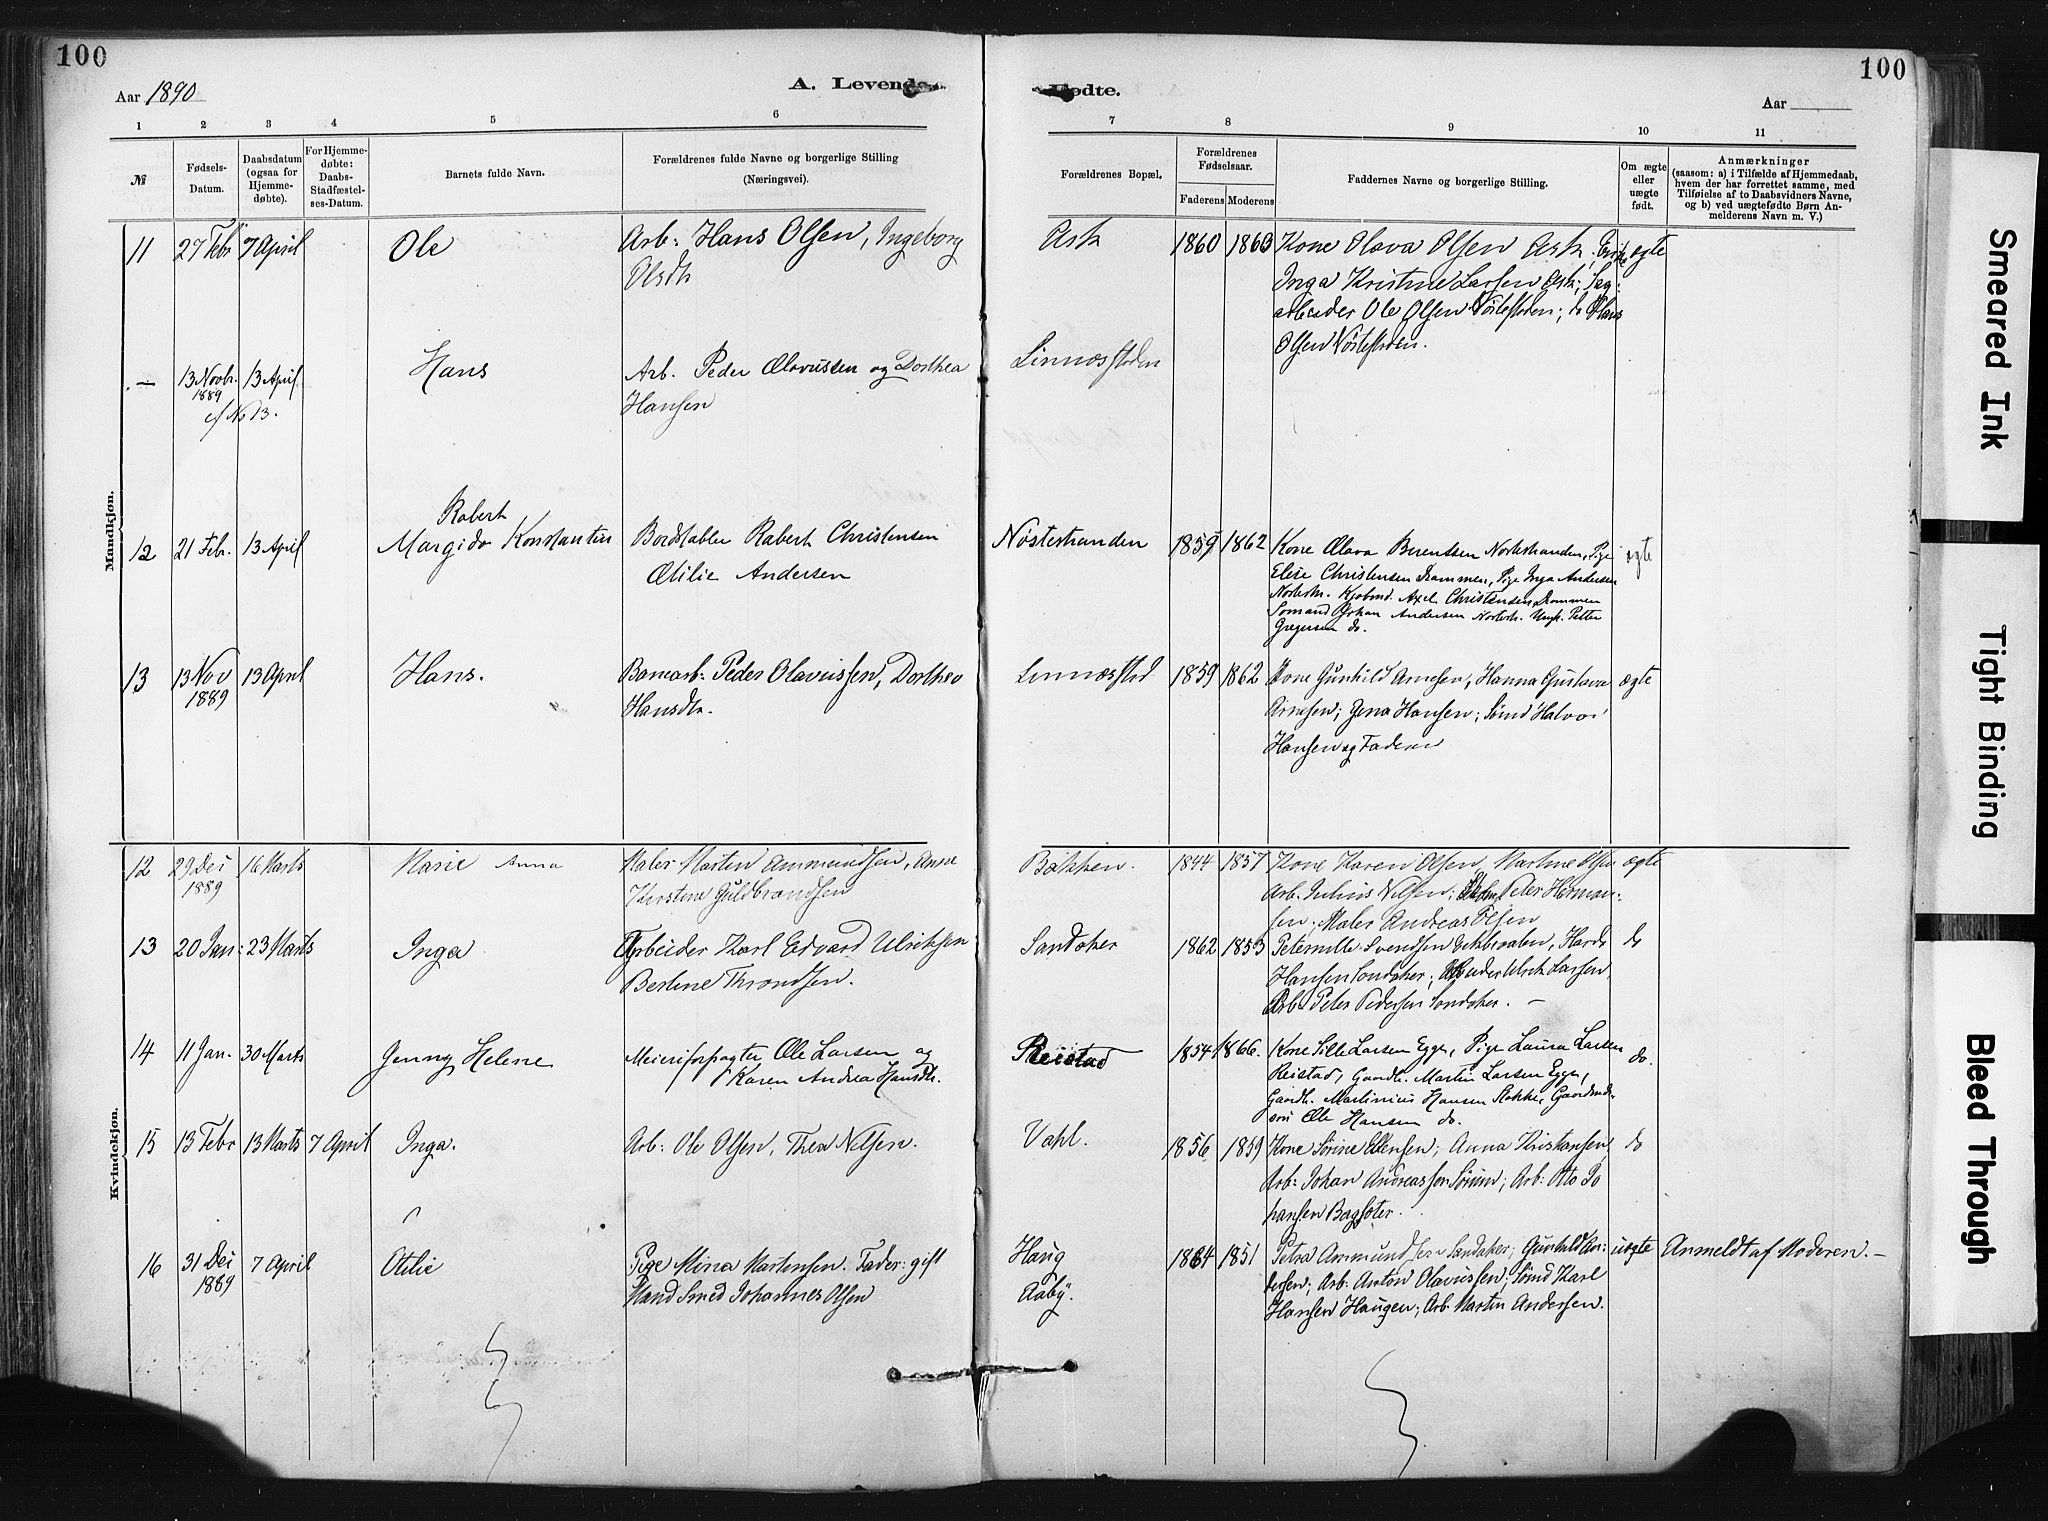 100
100
Aar 1890
A. Levende
Fødte.
Aar
1 2 3 4 5 6 7 8 9 10 11
№
Fødsels-
Datum.
Daabsdatum
(ogsaa for
Hjemme-
døbte).
For Hjemme-
døbte:
Daabs-
Stadfæstel-
ses-Datum.
Barnets fulde Navn.
Forældrenes fulde Navne og borgerlige Stilling
(Næringsvei).
Forældrenes Bopæl.
Forældrenes
Fødselsaar.
Faderens Moderens
Faddernes Navne og borgerlige Stilling.
Om ægte
eller
uægte
født.
Anmærkninger
(saasom: a) i Tilfælde af Hjemmedaab,
hvem der har forrettet samme, med
Tilføielse af to Daabsvidners Navne,
og b) ved uægtefødte Børn An-
melderens Navn m. V.)
Mandkjøn.
11 27 Febr 7 April Ole
Arb: Hans Olsen, Ingeborg
Olsdtr
Ask 1860 1860
Kone Olava Olsen Ask;
ægte
Inga Kristine Larsen Ask; Sag-
arbeider Ole Olsen
; do Hans
Olsen
— 13 Novbr. 13 April Hans
1889
cf No 13.
Arb. Peder Olavussen og Dorthea
Hansen
Linnæsstøen
12 21 Feb. 13 April
Robert
Margido Konstantin
Bordstabler Robert Christensen
Otilie Andersen
Nøstestranden 1859 1862
Kone Olava Berentsen Nøstestranden, Pige
ægte
Elise Christensen Drammen, Pige Inga Andersen
Nøstestr. Kjøbmd. Axel Christensen, Drammen
Sømand Johan Andersen Nøstestr. Ungk. Petter
Gregersen do.
13 13 Nov 13 April Hans.
1889
Banearb: Peder Olavussen, Dorthea
Hansdtr.
Linnæsstød 1859 1862
Kone Gunhild Arnesen, Hanna Gustava
ægte
Arnesen; Gina Hansen; Sømd Halvor
Hansen og Faderen
Kvindekjøn.
12 29 Dec 16 Marts Marie Anna
1889
Maler Martin Ammundsen, Anne
Kirstine Guldbrandsen
Bakken. 1844 1857
Kone Karen Olsen, Martine Olsen
ægte
Arb. Julius Nilsen; Peter Herman-
sen; Maler Andreas Olsen
13 20 Jan: 23 Marts Inga
Arbeider Karl Edvard Ulriksen
Berline Throndsen.
Sandaker 1862 1853
Peternille Svendsen
do
Hansen Sandaker; Ulrik Larsen
Arb. Peter Pedersen Sandaker. —
14 11 Jan. 30 Marts Jenny Helene
Meieriforpagter Ole Larsen og
Karen Andrea Hansdtr.
Reistad 1854 1866.
Kone Sille Larsen Egge, Pige Laura Larsen
do.
Reistad, Gaardbr. Martin Larsen Egge,
Gaardbr. Martinius Hansen Stokke, Gaardmds-
søn Ole Hansen do.
15 13 Febr 13 Marts 7 April Inga.
Arb: Ole Olsen, Thea Nilsen.
Vahl. 1856 1859
Kone Sørine Ellensen; Anna Kristiansen,
do
Arb: Johan Andreassen Sørum; Arb: Otto Jo
hansen Bagsæter.
16 31 Dec 7 April Otilie
1889
Pige Mina Martinsen. Fader: gift
Mand Smed Johannes Olsen
Haug
Aaby.
1864 1851
Petra Ammundsen Sandaker; Gunhild An-
uægte
Anmeldt af Moderen. —
dersen; Arb: Anton Olavussen; Sømd Karl
Hansen Haugen; Arb. Martin Andersen.
Smeared Ink
Tight Binding
Bleed Through